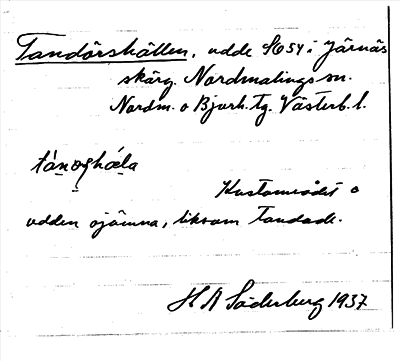 Tandörshällen, udde SO 54 i Järnäs
skärg. Nordmalings sn.
Nordm. o Bjurh. tg. Västerb. l.
Kustområdet o
udden ojämna, liksom tandade.
H A Söderberg 1937